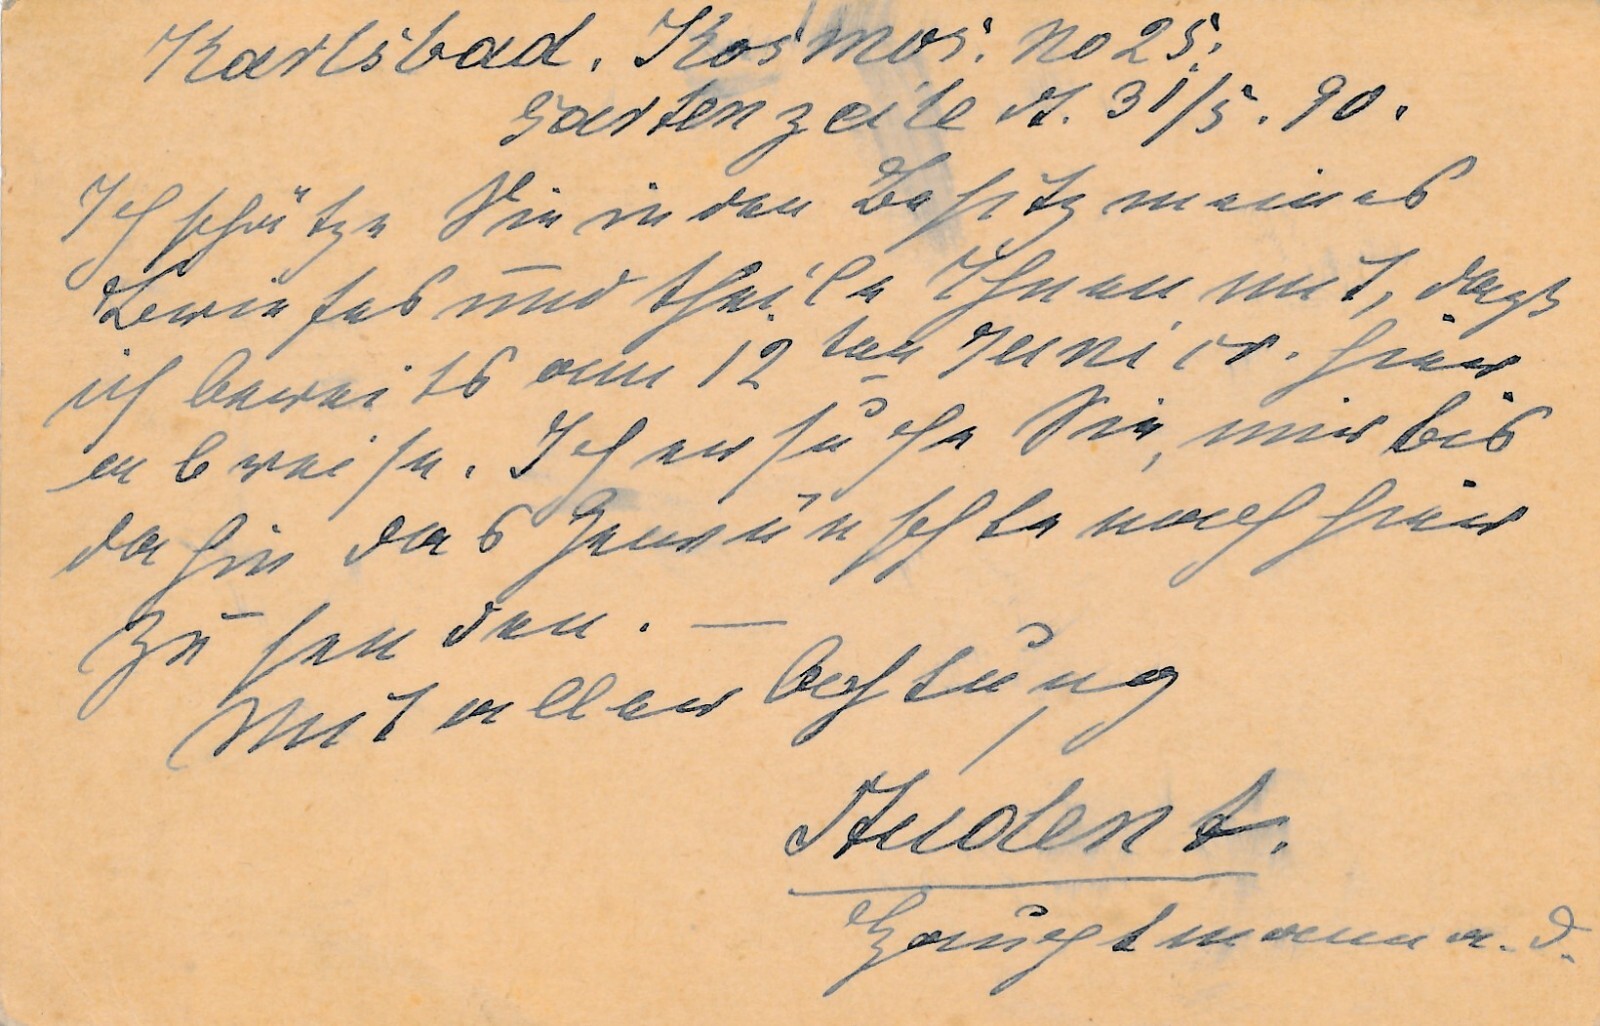 Karlsbad. Kosmos. No 25.
Gartenzeile d. 31/5. 90.
Ich schätze Sie in den Besitz meines
Briefes und theile Ihnen mit, dass
ich bereits am 12ten Juni cr. hier
abreise. Ich ersuche Sie, mir bis
dahin das Gewünschte nach hier
zu senden. —
Mit aller Achtung
Student.
Hauptmann a. D.